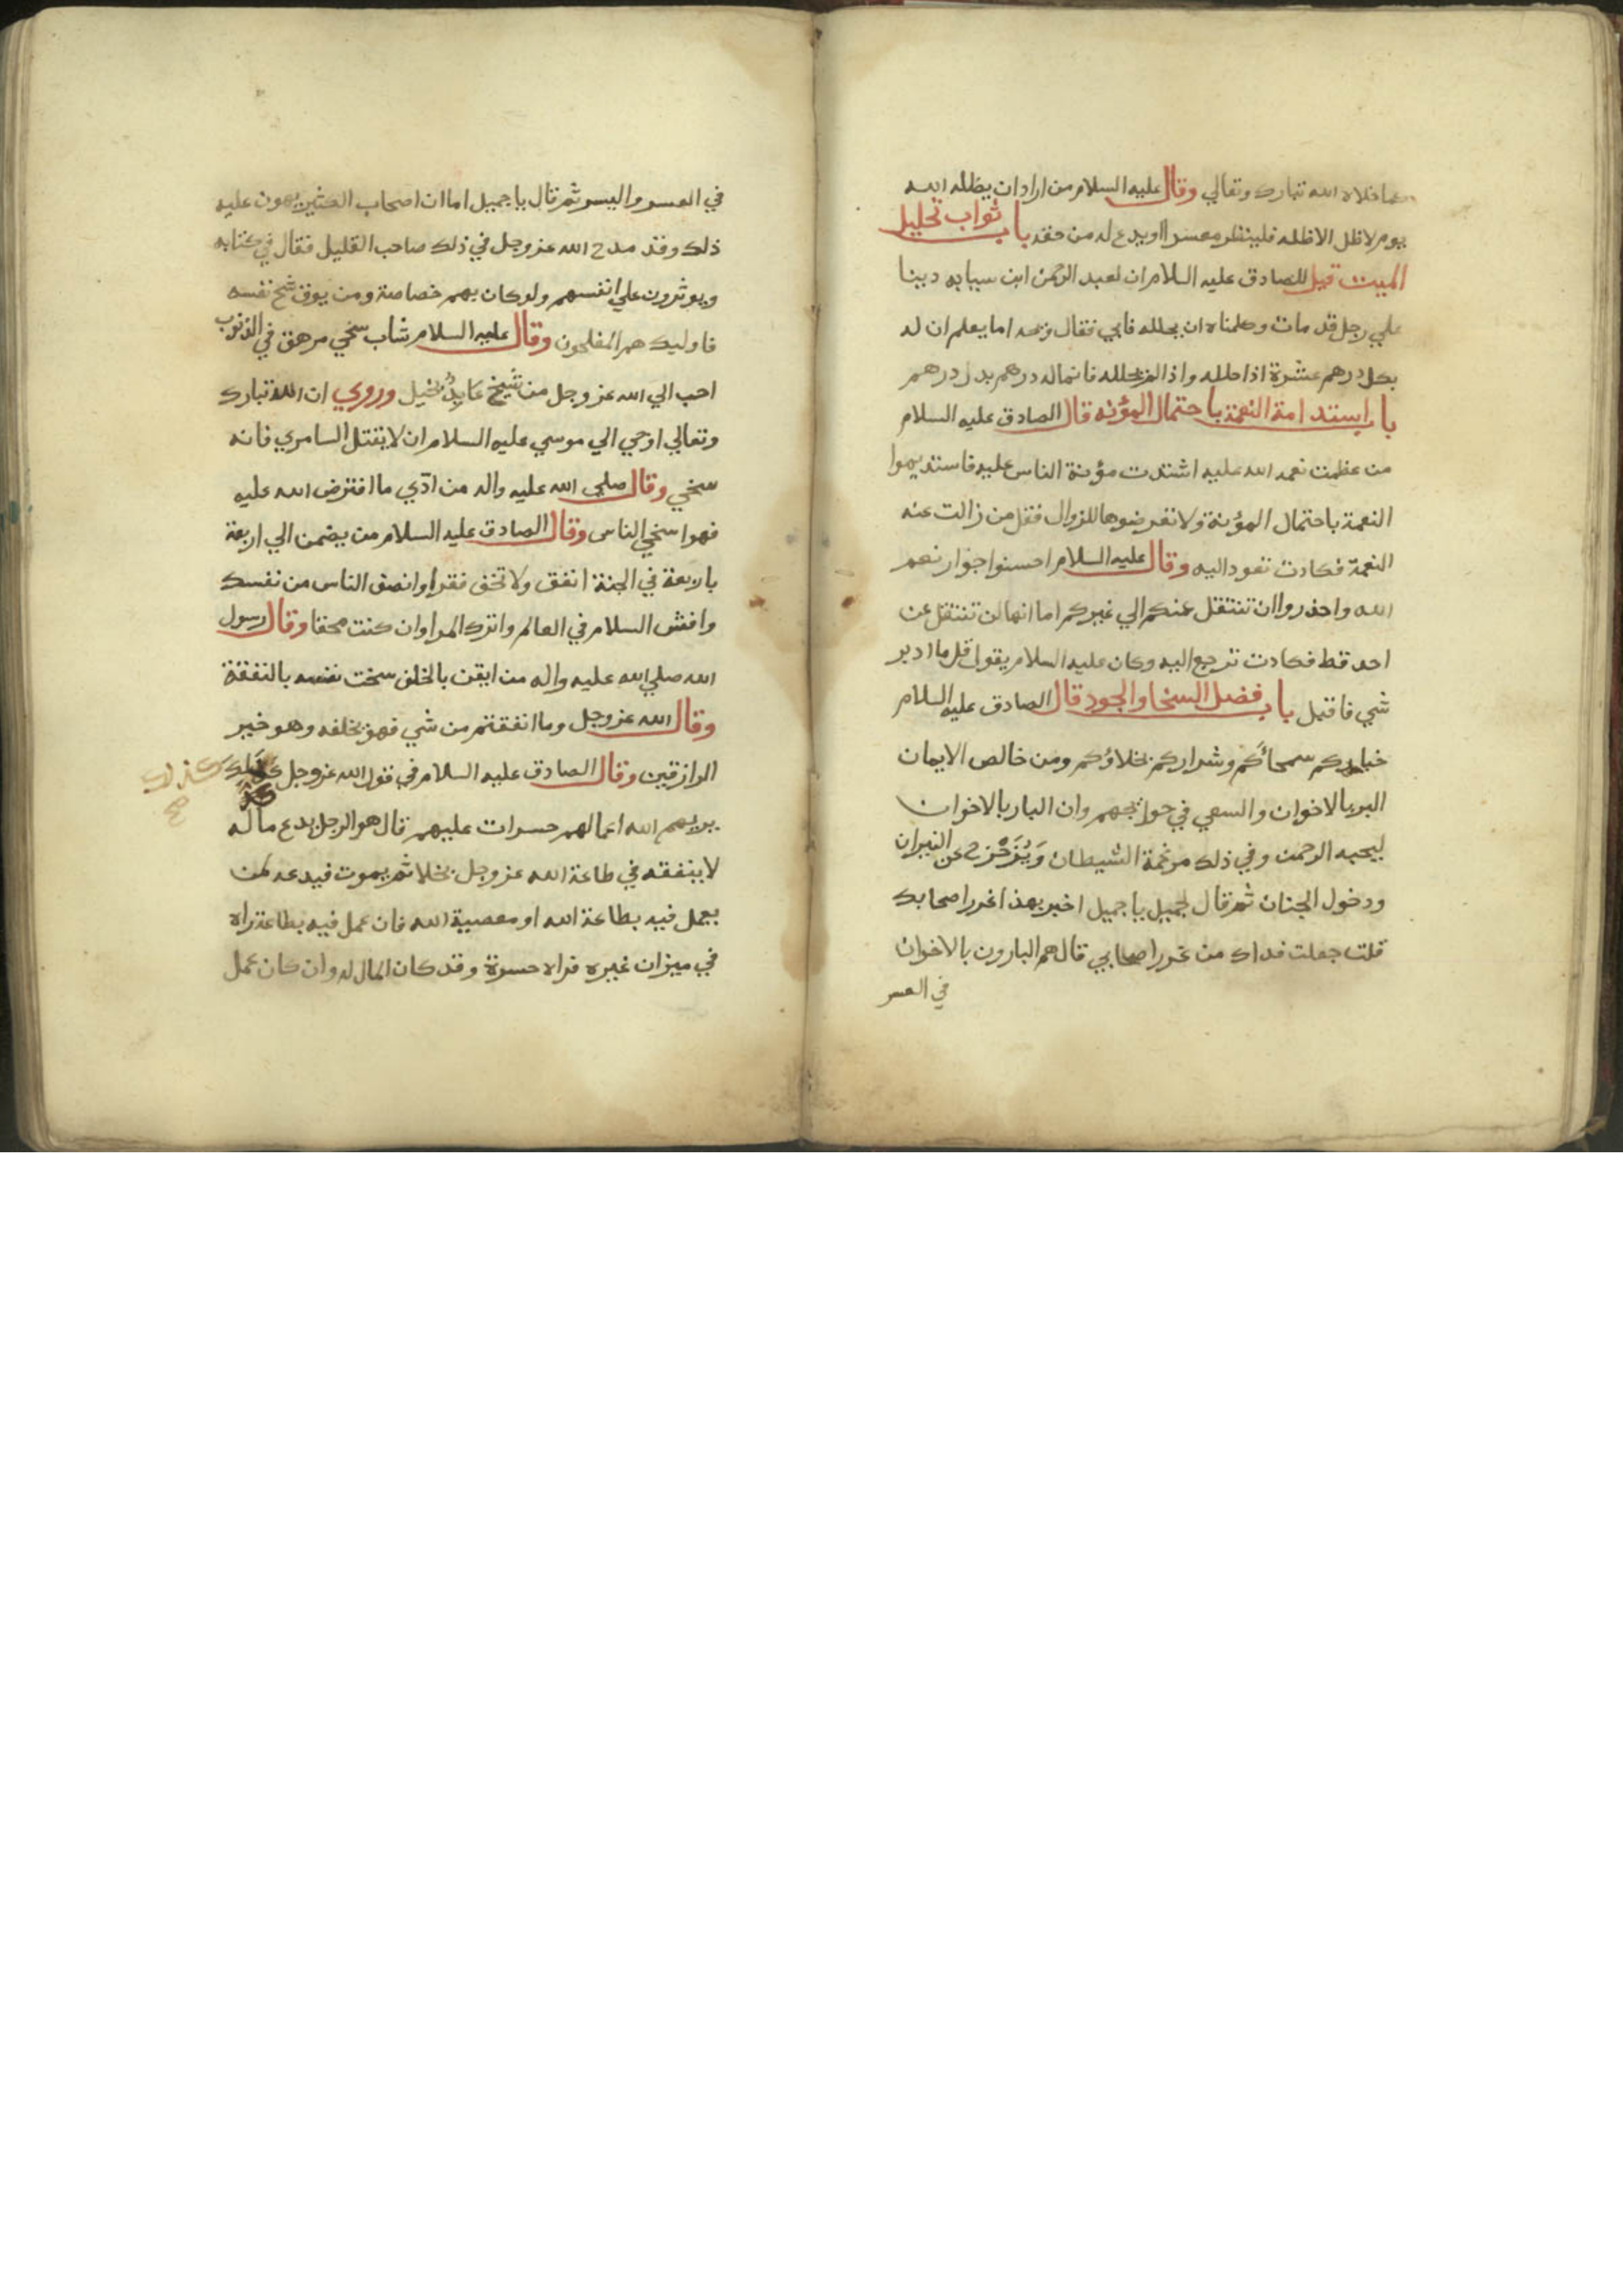 كما خلاه الله تبارك وتعالي وقال عليه السلام من اراد ان يظله الله
يوم لاظل الاظله فلينظر معسرا اويدع له من حقه باب ثواب تحليل
الميت قيل للصادق عليه السلام ان لعبد الرحمن ابن سيابه دينا
علي رجل قد مات وكلمناه ان يحلله فابي فقال ويحه اما يعلم ان له
بكل درهم عشرة اذا حلله واذا لم يحلله فانما له درهم بدل درهم
باب استدامة النعمة باحتمال المؤنه قال الصادق عليه السلام
من عظمت نعمه الله عليه اشتدت مؤنة الناس عليه فاستديموا
النعمة باحتمال المؤنة ولا تعرضوها للزوال فقل من زالت عنه
النعمة فكادت تعود اليه وقال عليه السلام احسنوا جوار نعم
الله واحذروا ان تنتقل عنكم الي غيركم اما انها لن تنتقل عن
احد قط فكادت ترجع اليه وكان عليه السلام يقول قل ما ادبر
شي فاقبل باب فضل السخا والجود قال الصادق عليه السلام
خياركم سمحائكم وشراركم بخلاؤكم ومن خالص الايمان
البر بالاخوان والسعي في حوايجهم وان البار بالاخوان
ليحبه الرحمن وفي ذلك مرغمة الشيطان وَيُزَحْزح عن النيران
ودخول الجنان ثم قال لجميل يا جميل اخبر بهذا غرر اصحابك
قلت جعلت فداك من غرر اصحابي قال هم البارون بالاخوان
في العسر
في العسر واليسر ثم قال يا جميل اما ان اصحاب الكثير يهون عليه
ذلك وقد مدح الله عز وجل في ذلك صاحب القليل فقال في كتابه
ويوثرون علي انفسهم ولو كان بهم خصاصة ومن يوق شح نفسه
فاوليك هم المفلحون وقال عليه السلام شاب سخي مرهق في الذنوب
احب الي الله عز وجل من شيخ عابدٍ بخيل وروي ان الله تبارك
وتعالي اوحي الي موسي عليه السلام ان لا يقتل السامري فانه
سخي وقال صلي الله عليه واله من ادّي ما افترض الله عليه
فهوا سخي الناس وقال الصادق عليه السلام من يضمن الي اربعة
باربعة في الجنة انفق ولا تخف فقرا وانصف الناس من نفسك
وافش السلام في العالم واترك المرا وان كنت محقا وقال رسول
الله صلي الله عليه واله من ايقن بالخلف سخت نفسه بالنفقة
وقال الله عز وجل وما انفقتم من شي فهو يخلفه وهو خير
الرازقين وقال الصادق عليه السلام في قول الله عز وجل كذلك
كذلك
صح
يريهم الله اعمالهم حسرات عليهم قال هو الرجل يدع ماله
لا ينفقه في طاعة الله عز وجل بخلا ثم يموت فيدعه لمن
يعمل فيه بطاعة الله او معصية الله فان عمل فيه بطاعة راه
في ميزان غيره فراه حسرة وقد كان المال له وان كان عمل